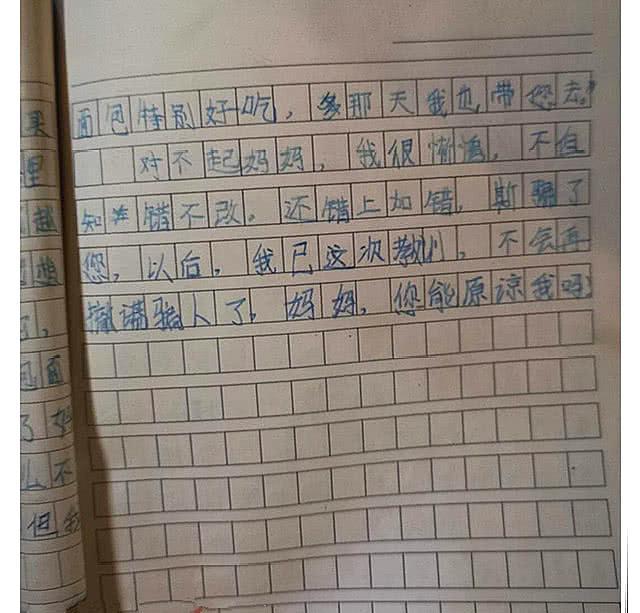 面包特别好吃，多那天我也带您去。
对不起妈妈，我很懒惰，不但
知错不改。还错上加错，欺骗了
您，以后，我已这次教训，不会再
撒谎骗人了。妈妈，您能原谅我吗
买
里
越
想
，
包面
了好
么不
但我